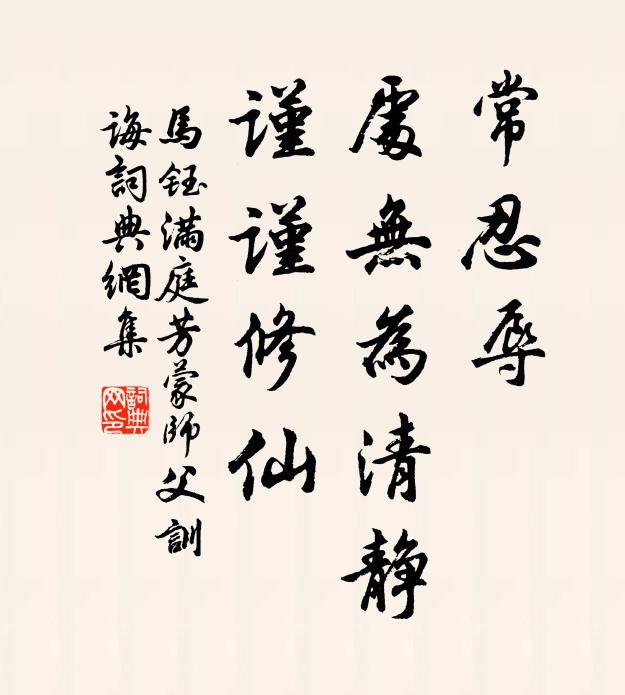 常忍辱
處無為清靜
謹謹修仙
馬鈺滿庭芳蒙師父訓
誨詞典網集
詞典
网印